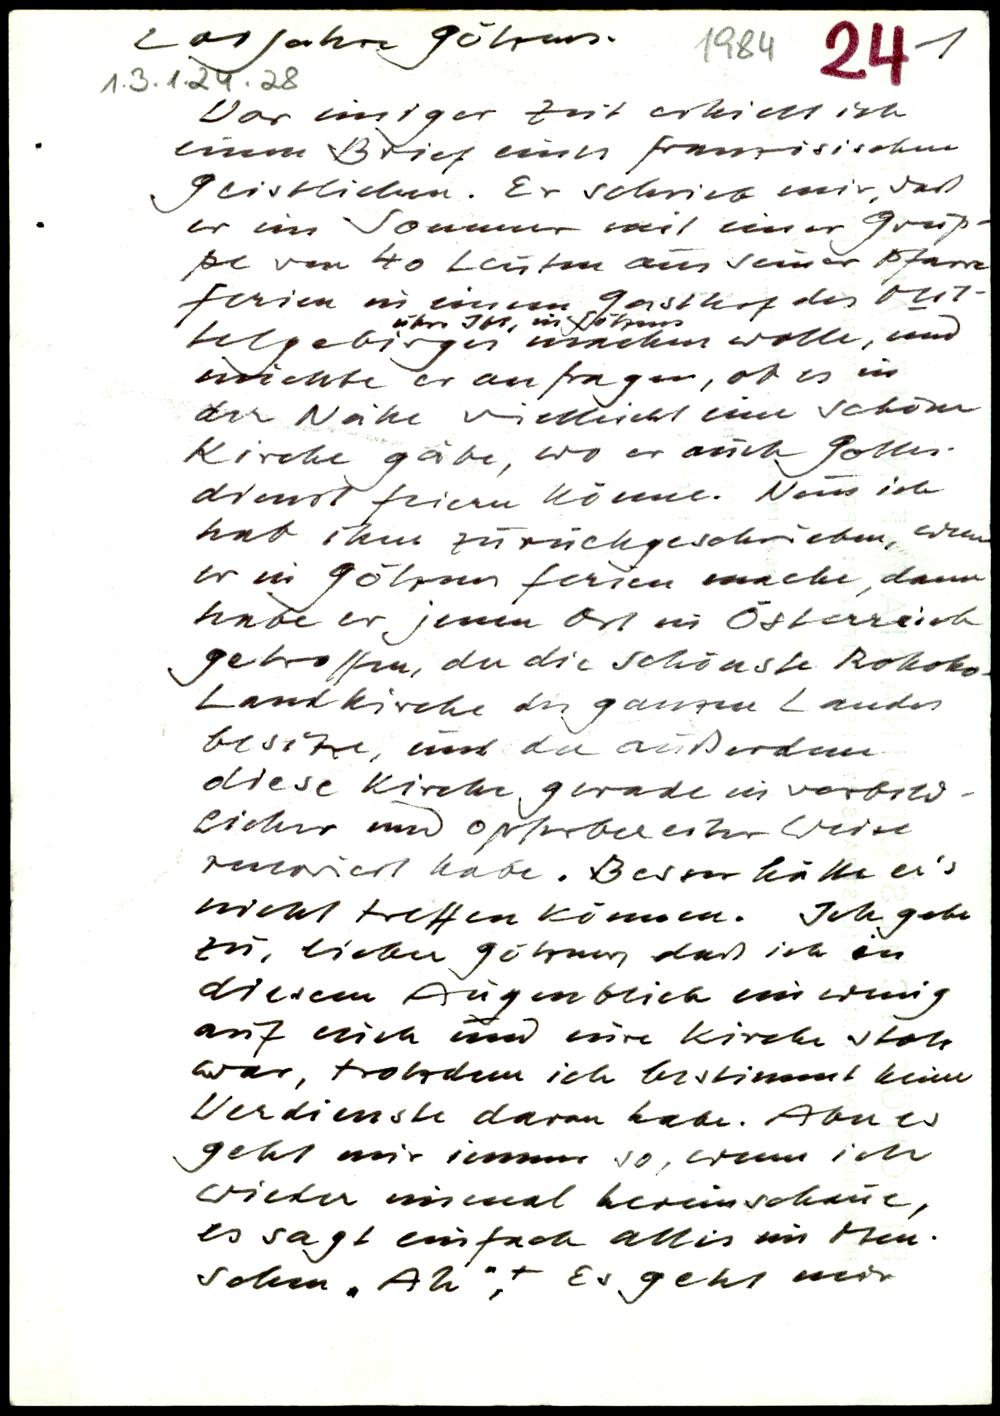 201 Jahre Götzens.
1984
24-1
1.3.1.24.28
Vor einiger Zeit erhielt ich
einen Brief eines französischen
Geistlichen. Er schrieb mir, daß
er im Sommer mit einer Grup-
pe von 40 Leuten aus seiner Pfarre
Ferien in einem Gasthof des Mit-
über Ibk, in Götzens
telgebirges machen wolle, und
möchte er anfragen, ob es in
der Nähe vielleicht eine schöne
Kirche gäbe, wo er auch Gottes-
dienst feiern könne. Nun ich
hab ihm zurückgeschrieben, wenn
er in Götzens Ferien mache, dann
habe er jenen Ort in Österreich
getroffen, der die schönste Rokoko-
Landkirche des ganzen Landes
besitze, und der außerdem
diese Kirche gerade in vorbild-
licher und opferbereiter Weise
renoviert habe. Besser hätte er's
nicht treffen können. Ich gebe
zu, liebe Götzner, daß ich in
diesem Augenblick ein wenig
auf euch und eure Kirche stolz
war, trotzdem ich bestimmt keine
Verdienste daran habe. Aber es
geht mir immer so, wenn ich
wieder einmal hereinschaue,
es sagt einfach alles im Men-
schen „Ah", + Es geht mir